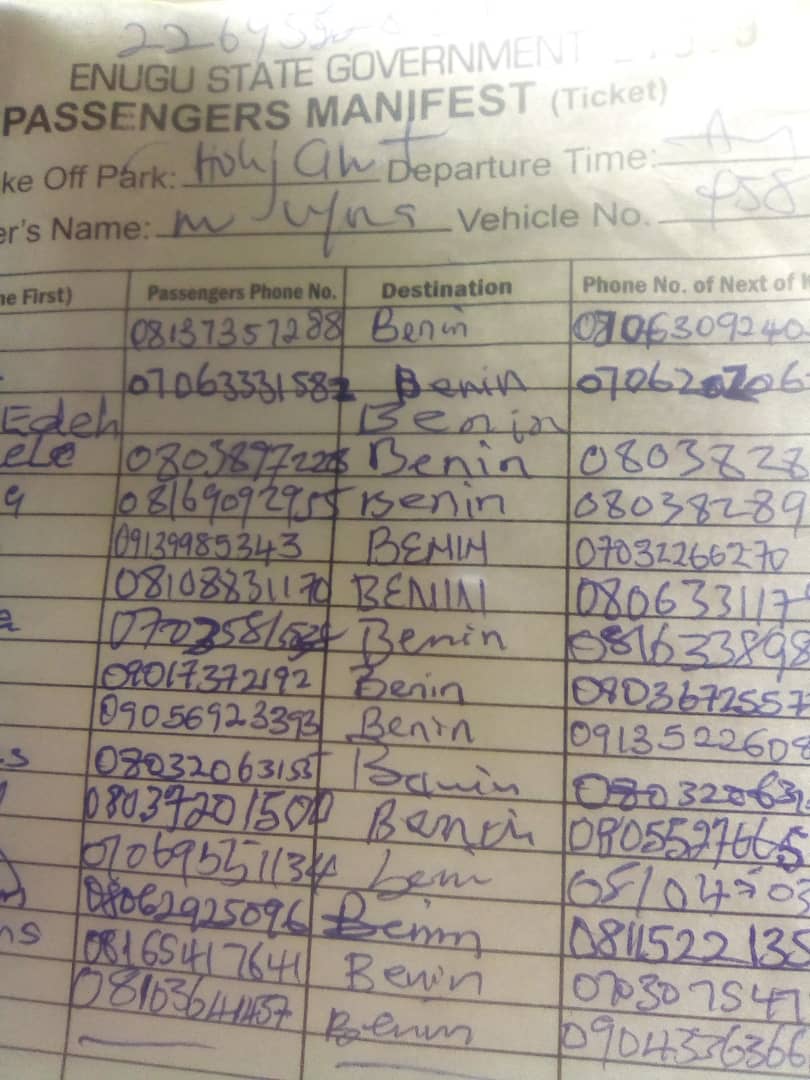 ENUGU STATE GOVERNMENT
PASSENGERS MANIFEST (Ticket)
ke Off Park: Holy Ghost Departure Time:
er's Name: Vehicle No. 458
ne First) Passengers Phone No. Destination Phone No. of Next of K
08137357288 Benin 08106309240
07063331582 Benin
Edeh Benin
ele 0803897228 Benin 0803828
08169092955 Benin 08038289
09139985343 BENIN 07032266270
08108831170 BENIN 080633117
Benin 081633898
09017372192 Benin 0803672557
09056923393 Benin 0913522608
s 08032063155 Benin 080320631
08037201500 Benin 0805527665
07069551134 Beni
08062925096 Benin 0811522135
ns 08165417641 Benin 070307547
08103641457 Benin 0904336366